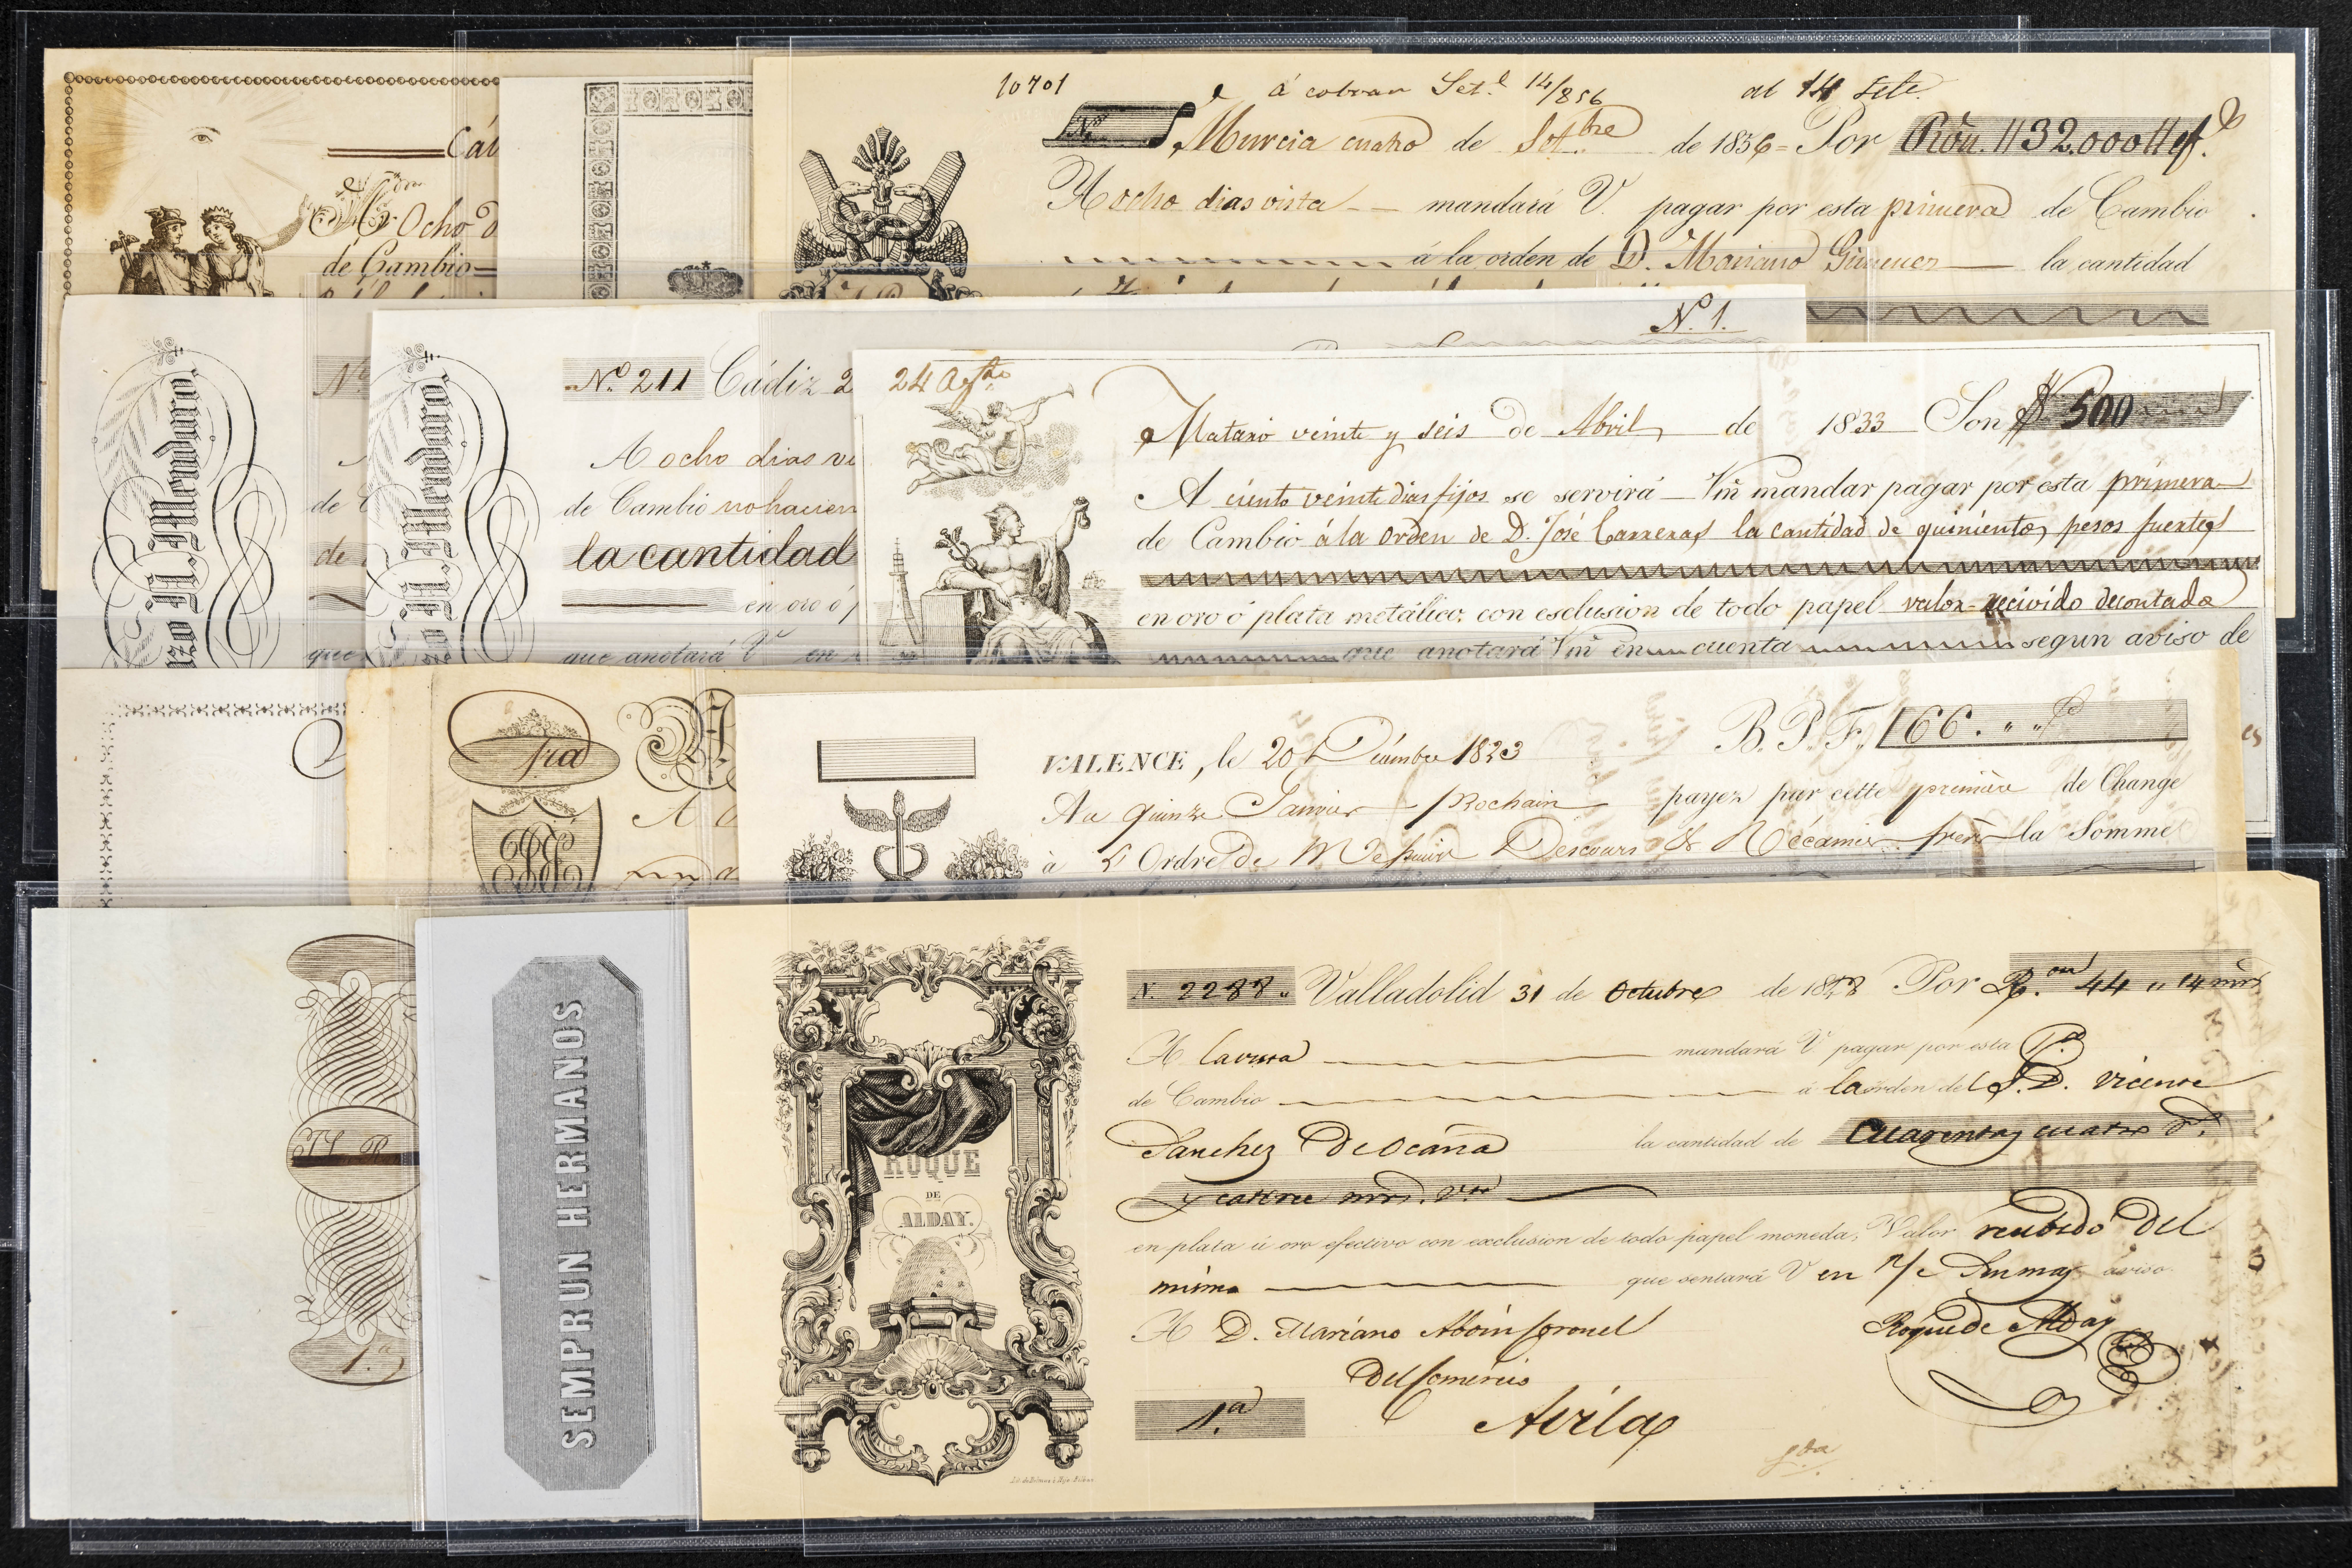 Cád
Ocho d
de Cambio
10701
á cobrar Set.e 14/856
al 14 Sete.
No Murcia cuatro de Set.bre de 1856 = Por Rvn. 32.000 ef.
A ocho dias vista mandará V. pagar por esta primera de Cambio
á la orden de D. Mariano Gimenez la cantidad
No
de C
de
que
zo N. Mendaro.
No. 211 Cádiz 2
A ocho dias vi
de Cambio no hacien
la cantidad
en oro ó p
que anotará V en
zo N. Mendaro.
No. 1.
24 Agto
Mataró veinte y seis de Abril de 1833 Son $ 500
A ciento veinte dias fijos se servirá Vm mandar pagar por esta primera
de Cambio á la orden de D. José Carreras la cantidad de quinientos pesos fuertes
en oro ó plata metálico, con esclusion de todo papel valor recivido de contado
que anotará Vm en cuenta segun aviso de
1ra
A
VALENCE, le 20 Décembre 1823 B.P.F. 166.
Au quinze Janvier prochain payez par cette première de Change
à L'Ordre de Messieurs Descours & Récamier frères la Somme
1.a
SEMPRUN HERMANOS
N. 2288. Valladolid 31 de Octubre de 18 8 Por R.on 44 14 mrs
A la vista mandará V pagar por esta P.ra
de Cambio á la orden del S.D. Vicente
Sanchez De Ocaña la cantidad de Cuarenta y cuatro r.s
y catorce mrs. von
en plata ú oro efectivo con exclusion de todo papel moneda; Valor recibido Del
mismo que sentará V en aviso
A D. Mariano Aboin Coronel Roque de Alday
Del Comercio
1.a Avila
ROQUE
DE
ALDAY.